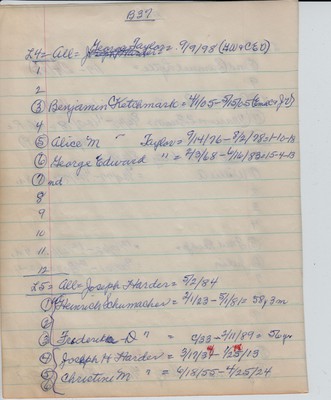 B37
L4 = All = George Taylor = 9/9/98 (HW+CED)
1
2
③ Benjamin Ketchmark = 4/1/05 - 5/15/05
4
⑤ Alice M " Taylor = 9/14/76 - 8/2/78 = 1-10-18
⑥ George Edward " " = 2/3/68 - 6/16/83 = 15-4-13
⑦ nd
8
9
10
11.
12
L5 = All = Joseph Harder = 5/2/84
① Heinrich Schumacher = 2/1/23 - 5/1/81 = 58y 3m
②
③ Frederike D " " = c/33 - 2/11/89 = 56 yrs
④ Joseph H Harder = 3/17/34 - 1/25/13
⑤ Christine M " = 6/18/55 - 4/25/24